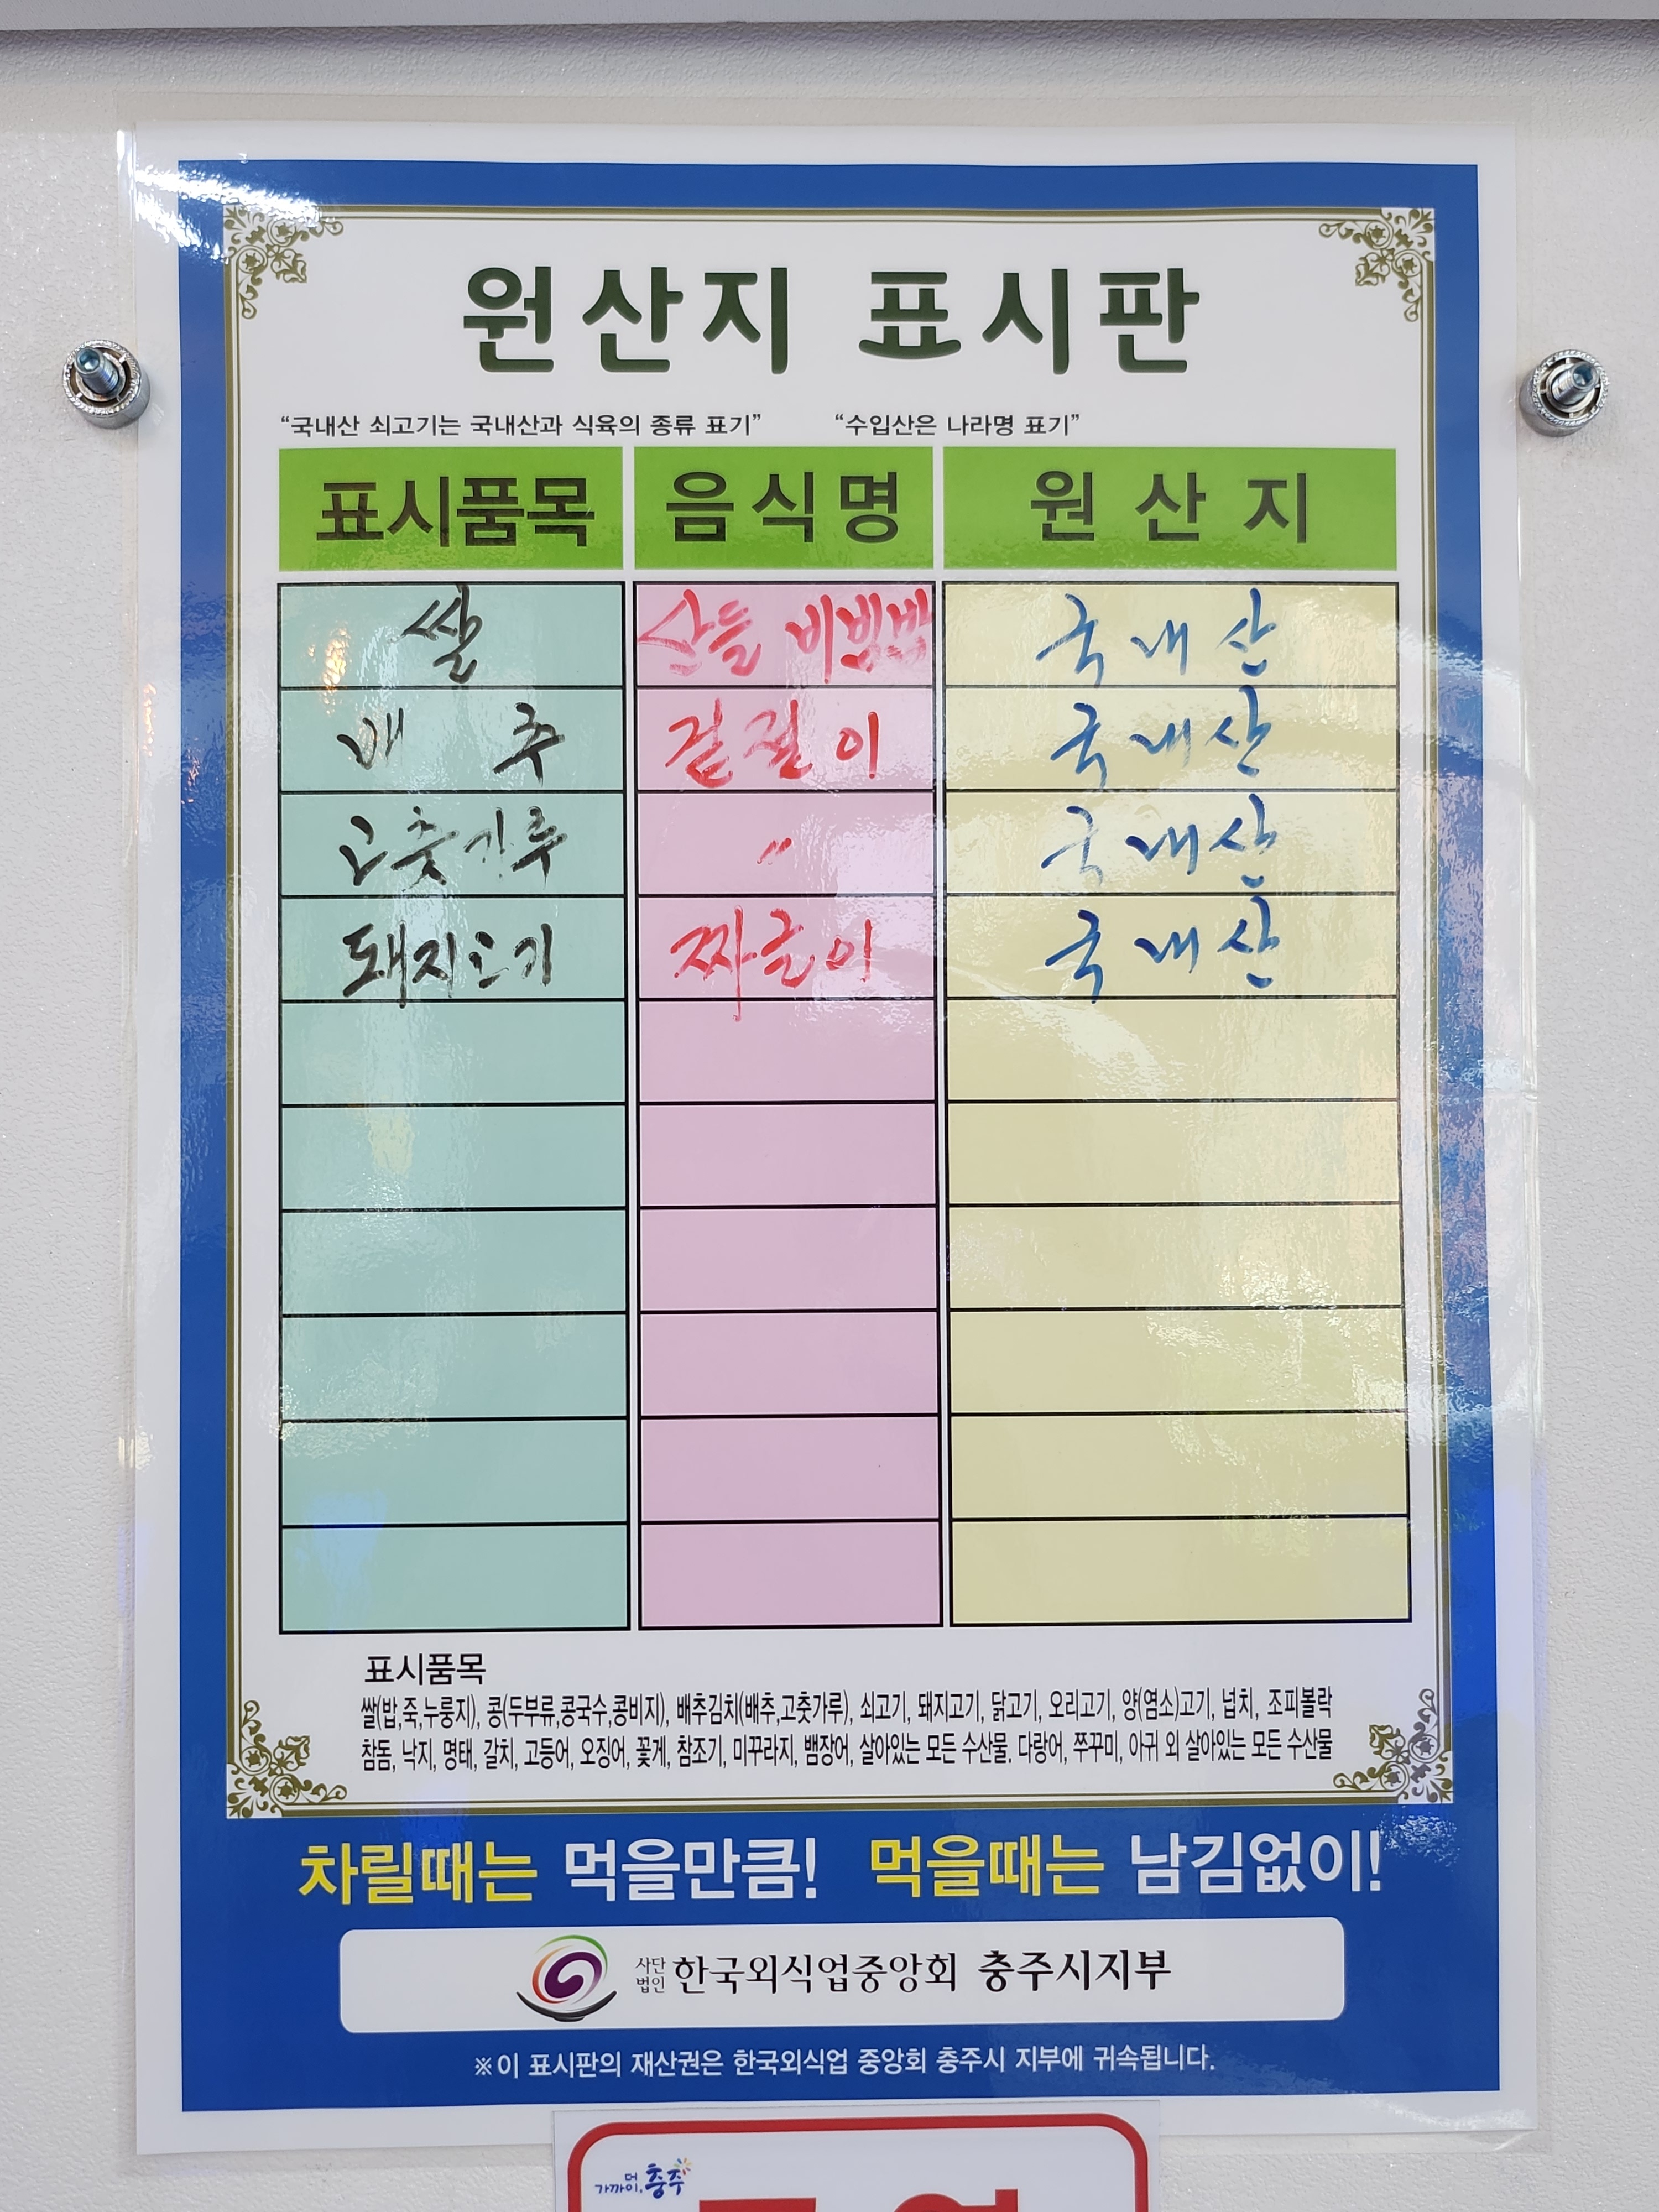 원산지 표시판
“국내산 쇠고기는 국내산과 식육의 종류 표기” “수입산은 나라명 표기”
표시품목 음식명 원산지
쌀 산들 비빔밥 국내산
배추 겉절이 국내산
고춧가루 〃 국내산
돼지고기 짜글이 국내산
표시품목
쌀(밥,죽,누룽지), 콩(두부류,콩국수,콩비지), 배추김치(배추,고춧가루), 쇠고기, 돼지고기, 닭고기, 오리고기, 양(염소)고기, 넙치, 조피볼락
참돔, 낙지, 명태, 갈치, 고등어, 오징어, 꽃게, 참조기, 미꾸라지, 뱀장어, 살아있는 모든 수산물. 다랑어, 쭈꾸미, 아귀 외 살아있는 모든 수산물
차릴때는 먹을만큼! 먹을때는 남김없이!
사단법인 한국외식업중앙회 충주시지부
※이 표시판의 재산권은 한국외식업 중앙회 충주시 지부에 귀속됩니다.
더 가까이, 충주